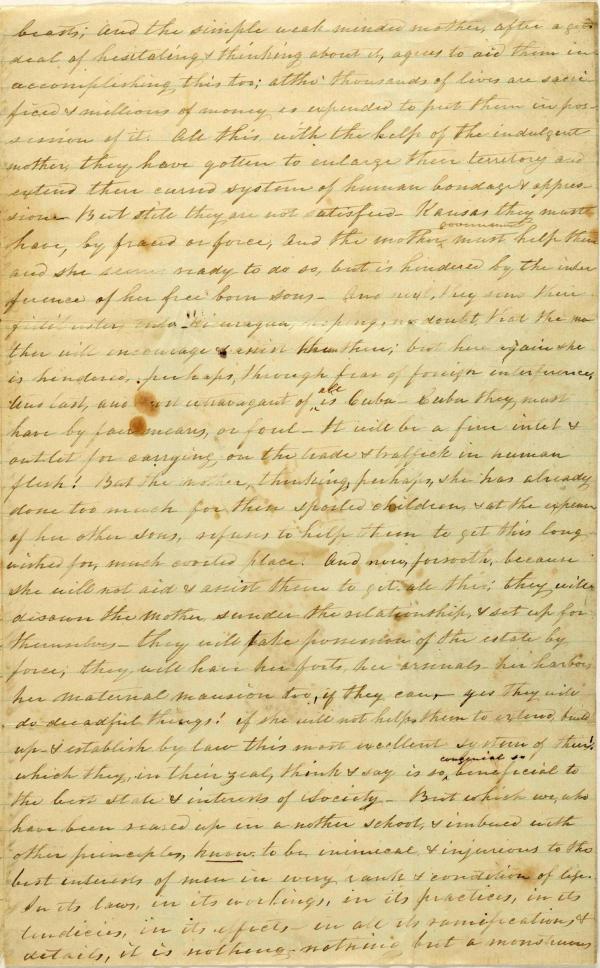 beasts; And the simple weak minded mother, after a good
deal of hesitating & thinking about it, agrees to aid them in
accomplishing this too; at the thousands of lives are sacri-
ficed & millions of money is expended to put them in pos-
session of it. All this, with the help of the indulgent
mother, they have gotten to enlarge their territory and
extend their cursed system of human bondage & oppres-
sion - But still they are not satisfied - Kansas they must
have, by fraud or force, And the mother government must help them
and she seems ready to do so, but is hindered by the inter
ference of her free born sons - And next, they send their
fillibuster, into Nicaragua, hoping, no doubt, that the mo
ther will encourage & assist them there; but here again she
is hindered, perhaps, through fear of foreign interference,
And last, and most extravagant of all is Cuba - Cuba they must
have by fair means, or foul - It will be a fine inlet &
outlet for carrying on the trade & traffick in human
flesh! But the mother, thinking, perhaps, she has already
done too much for these spoiled children, & at the expense
of her other sons, refuses to help them to get this long
wished for, much coveted place. And now, forsooth, because
she will not aid & assist them to get all this; they will
disown the mother, sunder the relationship, & set up for
themselves - they will take possession of the estate by
force; they will have her forts, her arsenals - her harbors
her maternal mansion too, if they can, - yes they will
do dreadful things! if she will not help them to extend, build
up & establish by law this most excellent system of theirs!
which they, in their zeal, think & say is so congenial so beneficial to
the best state & interests of society - But which we, who
have been reared up in a nother school, & imbued with
other principles, know, to be inimical & injurious to the
best interests of men in every rank & condition of life.
In its laws, in its workings, in its practices, in its
tendicies, in its effects - in all its ramifications &
details, it is nothing - nothing but a monstrous